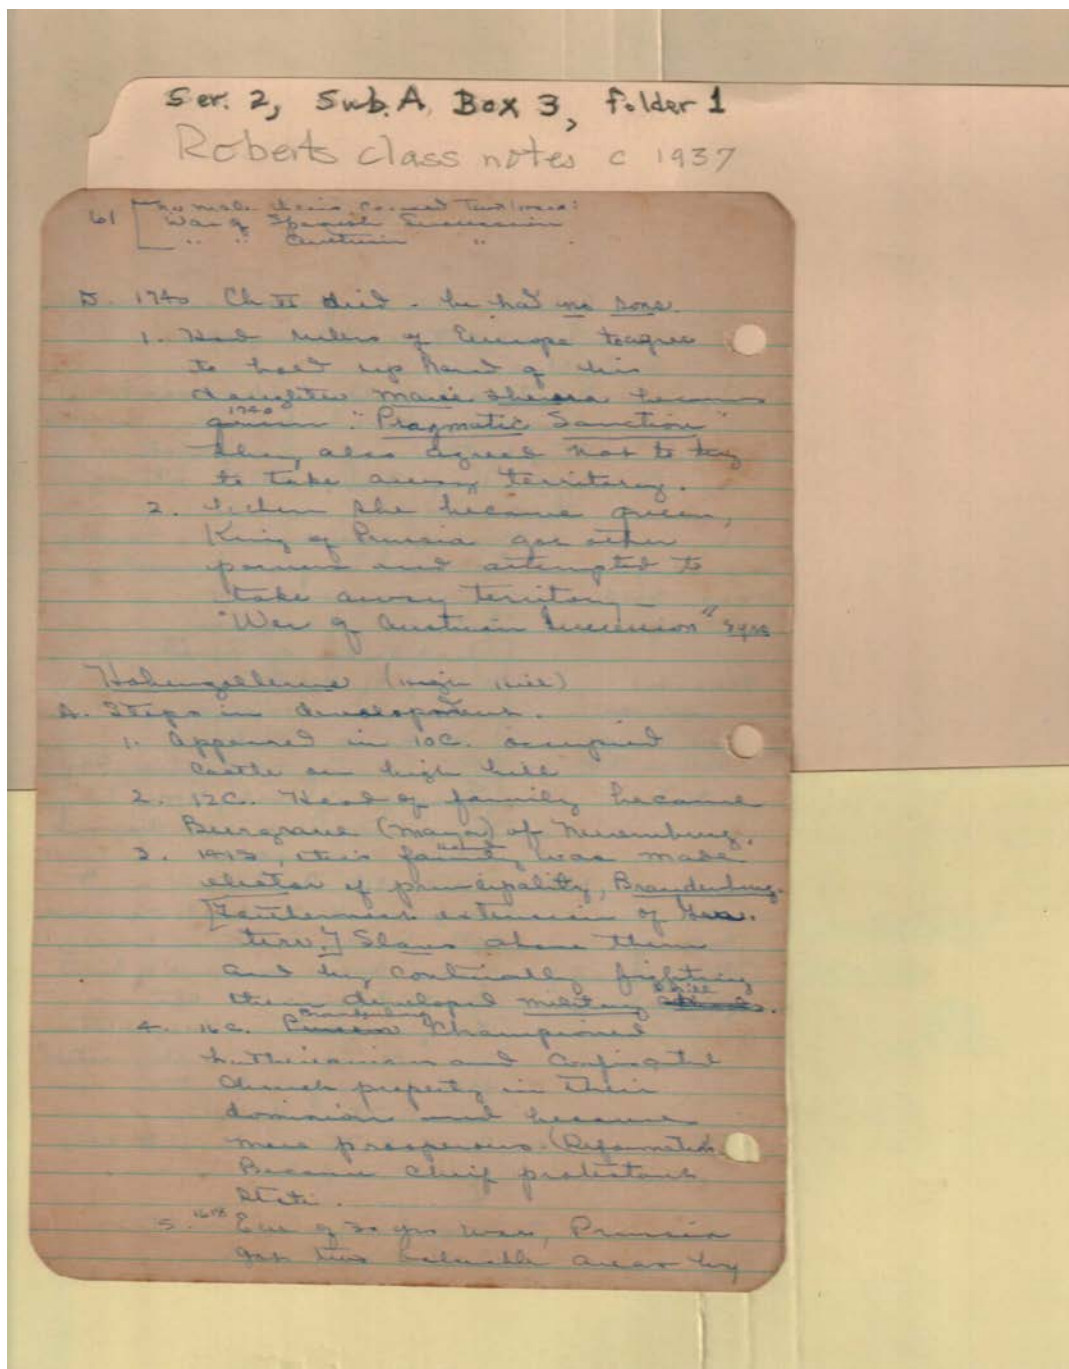 Ser. 2, Sub. A, Box 3, folder 1
Roberts class notes c 1937
61 [no male heirs caused two wars:
War of Spanish Succession
" " Austrian "
D. 1740 Ch VI died - he had no sons.
1. Had rulers of Europe to agree
to hold up hand of his
daughter Maria Theresa became
1740
queen: "Pragmatic Sanction"
they also agreed not to try
to take away territory.
2. When she became queen,
King of Prussia got other
powers and attempted to
take away territory -
"War of Austrian Succession" 8 yrs
Hohenzollerns (High Hill)
A. Steps in development.
1. Appeared in 10C. occupied
castle on high hill
2. 12C. Head of family became
Burgrave (Mayor) of Nuremburg.
3. this family was made
elector of principality, Brandenburg.
[Farthermost extension of Ger.
terr.] Slavs above them
and by continually fighting
skill
them developed military
Brandenburg
4. 16C. Prussia Championed
Lutheranism and Confiscated
church property in their
dominion and became
more prosperous. (Reformation)
Became chief protestant
State.
5. 1618 Eve of 30 yrs war, Prussia
got two valuable areas by